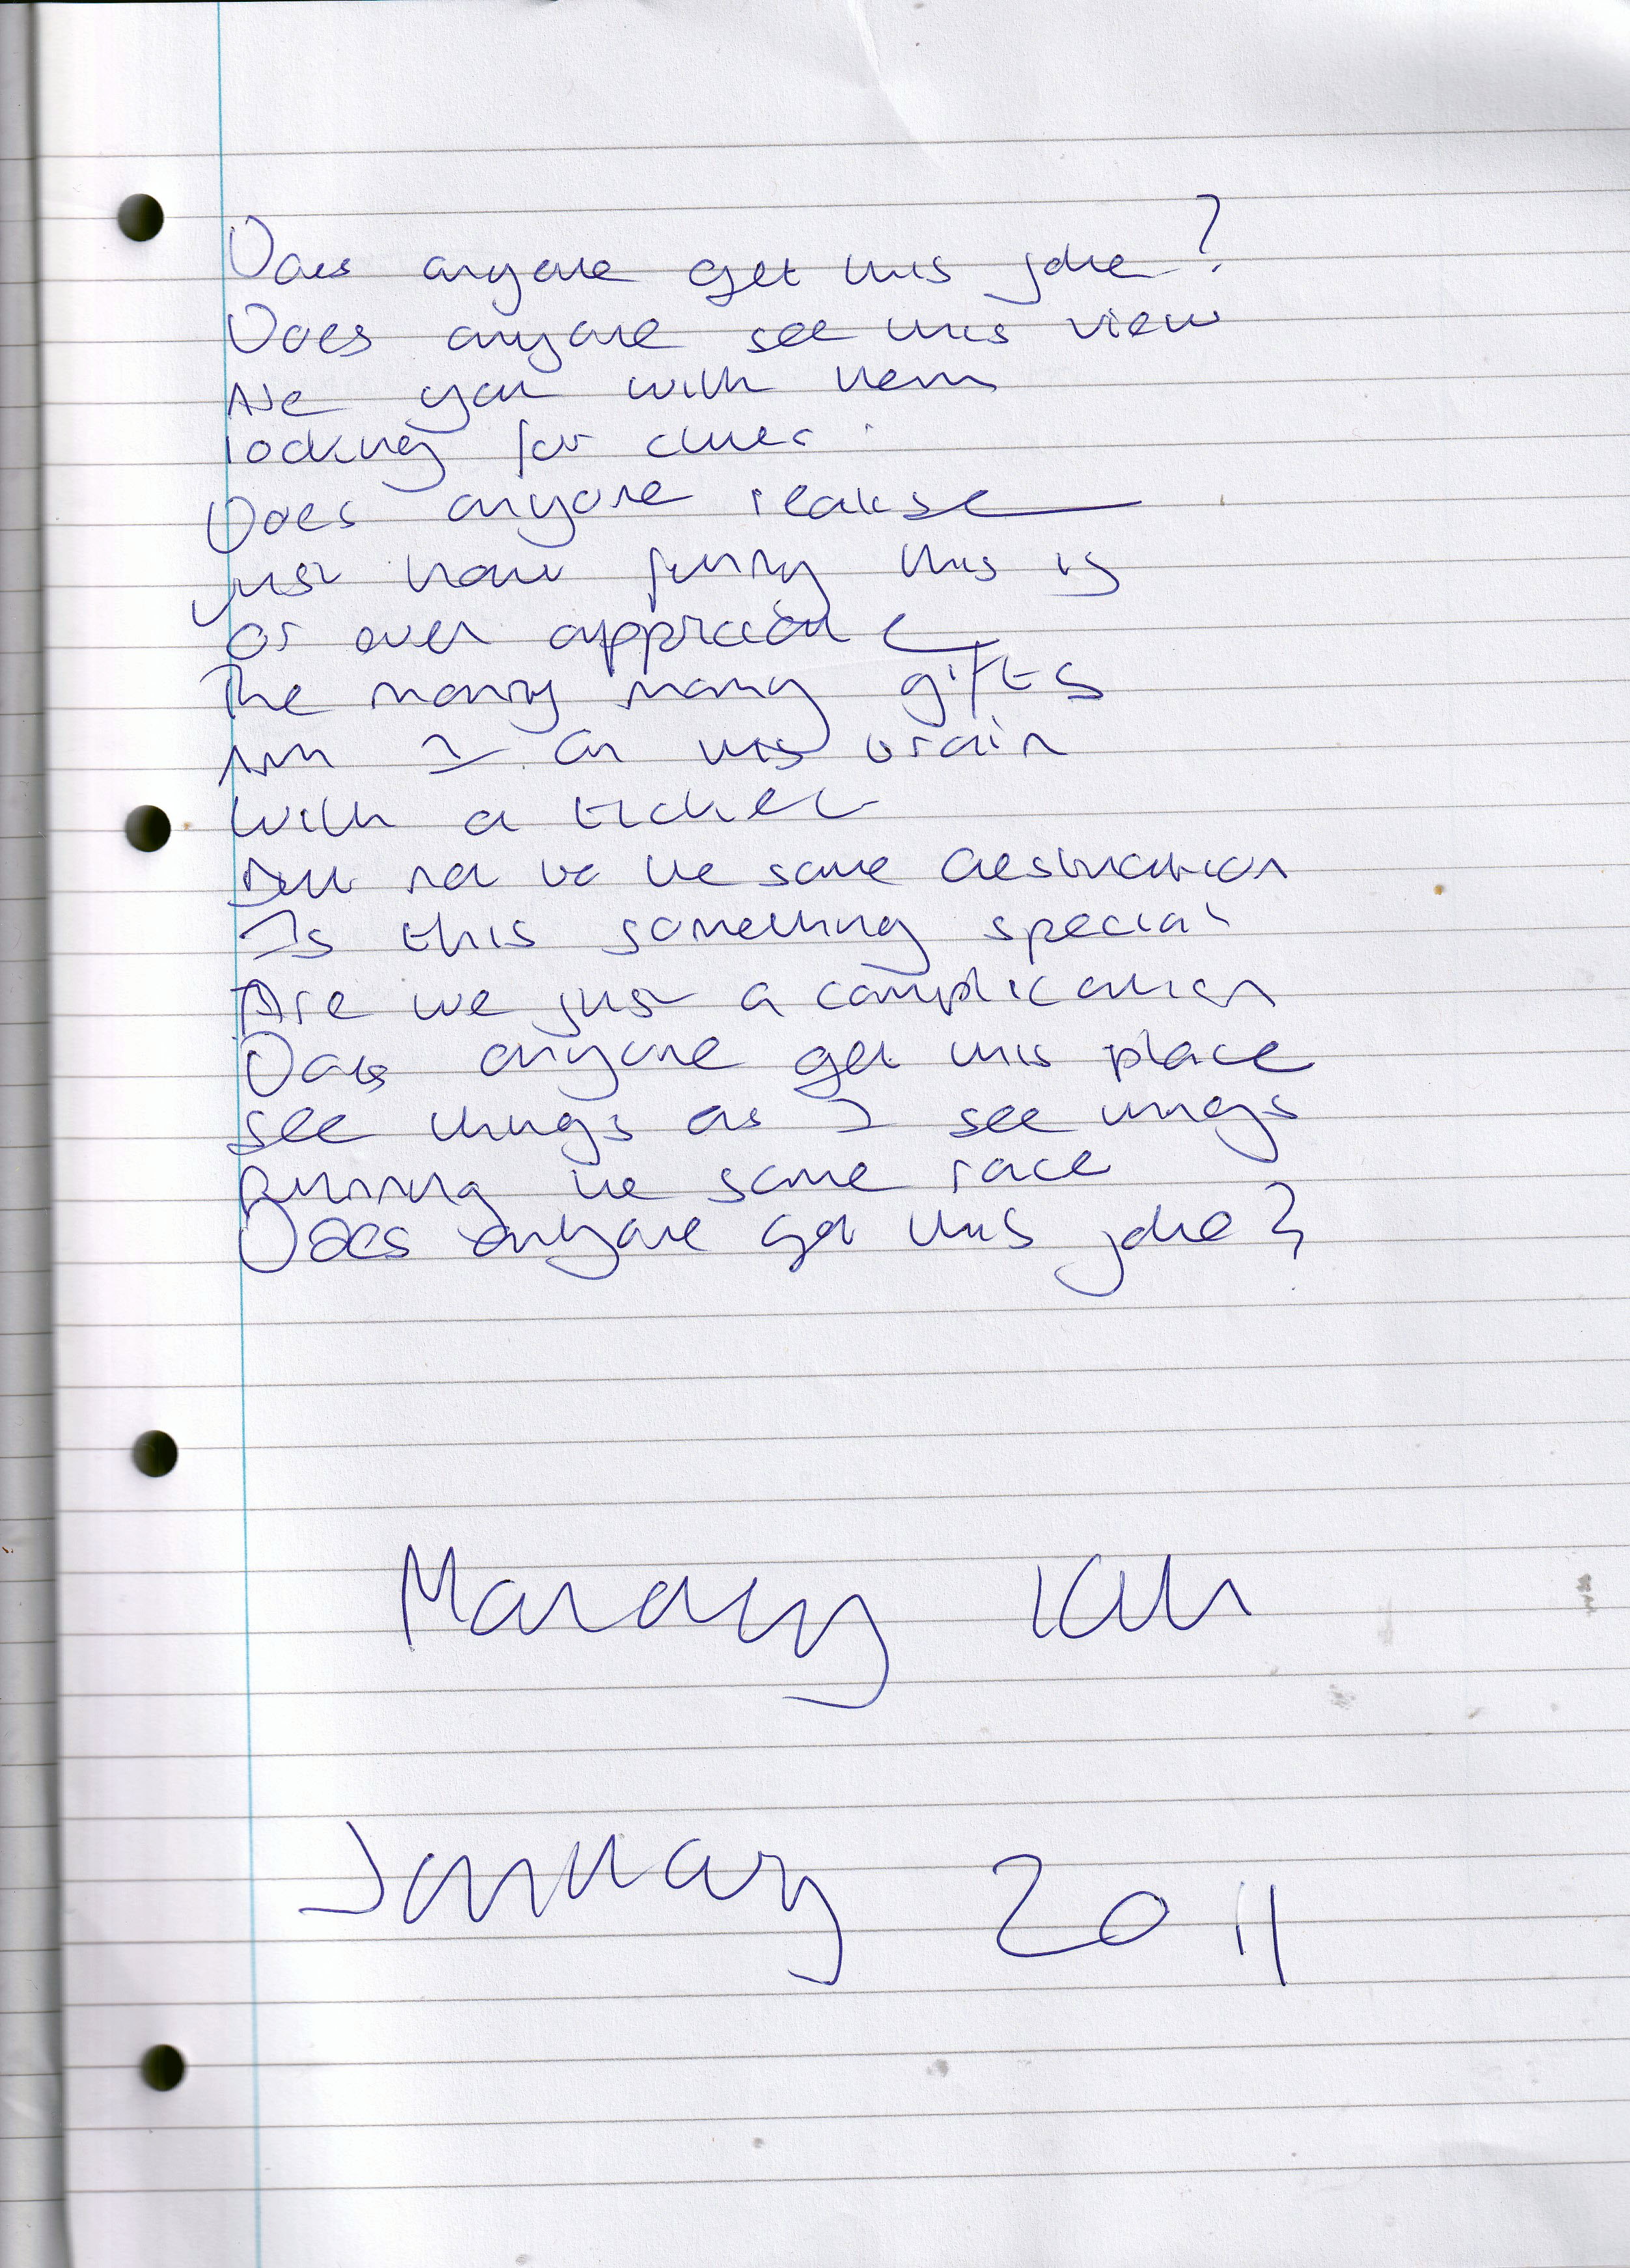 Does anyone get this joke?
Does anyone see this view
Are you with them
looking for clues
Does anyone realise
just how funny this is
or even appreciate
The many many gifts
Am I on this train
with a ticket
But not to the same destination
Is this something special
Are we just a complication
Does anyone get this place
see things as I see things
Running the same race
Does anyone get this joke?
January 2011